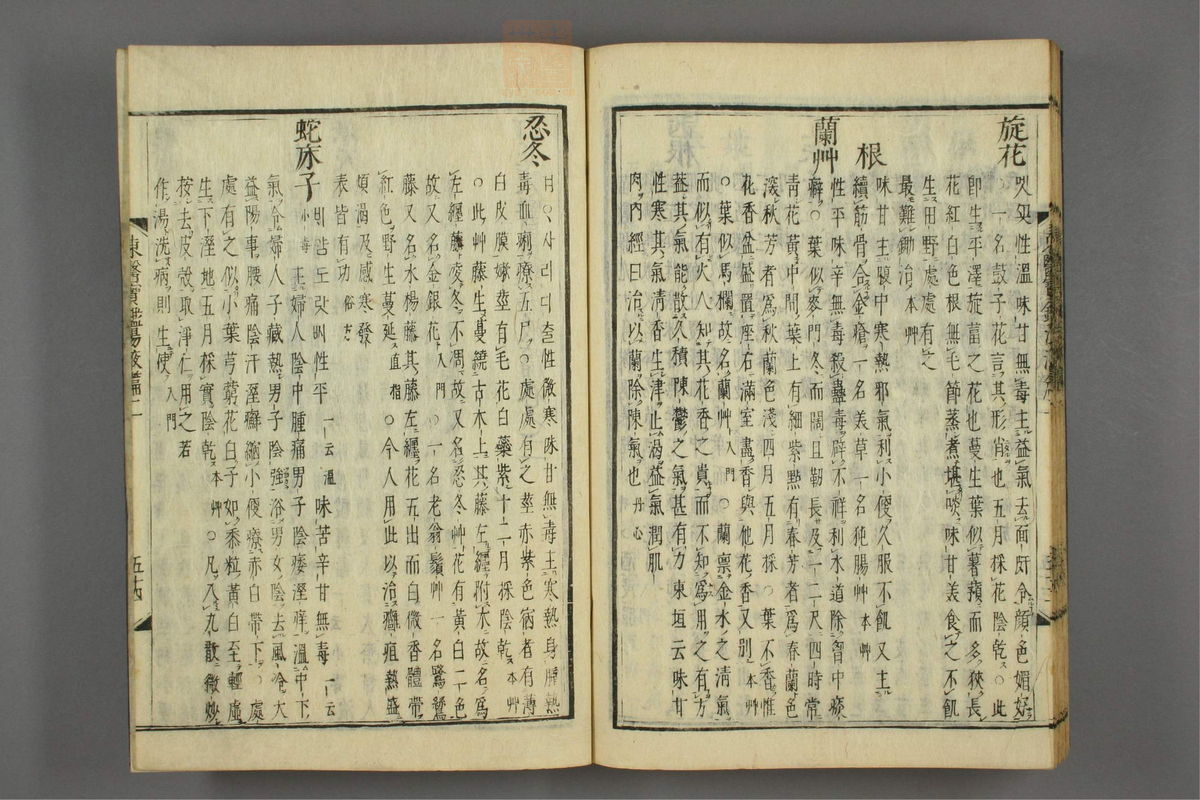 旋花
性溫味甘無毒主益氣去面皯令顏色媚好
○一名鼓子花言其形肖也五月採花陰乾○此
即生平澤旋葍之花也蔓生葉似薯蕷而多狹長
花紅白色根無毛節蒸煮堪啖味甘美食之不飢
生田野處處有之
最難鋤治本艸
根
味甘主腹中寒熱邪氣利小便久服不飢又主
續筋骨合金瘡一名美草一名㹠腸艸本艸
蘭艸
性平味辛無毒殺蠱毒辟不祥利水道除胷中痰
癖○葉似麥門冬而闊且靭長及一二尺四時常
靑花黃中間葉上有細紫點有春芳者爲春蘭色
深秋芳者爲秋蘭色淺四月五月採○葉不香惟
花香盆盛置座右滿室盡香與他花香又別本艸
○葉似馬欄故名蘭艸入門○蘭禀金水之淸氣
而似有火人知其花香之貴而不知爲用之有方
盖其氣能散久積陳鬱之氣甚有力東垣云味甘
性寒其氣淸香生津止渴益氣潤肌
肉內經曰治以蘭除陳氣也丹心
忍冬
性微寒味甘無毒主寒熱身腫熱
毒血痢療五尸○處處有之莖赤紫色宿者有薄
白皮膜嫩莖有毛花白蘂紫十二月採陰乾本艸
○此艸藤生蔓繞古木上其藤左纏附木故名爲
左纏藤凌冬不凋故又名忍冬艸花有黃白二色
故又名金銀花入門○一名老翁鬚艸一名鷺鷥
藤又名水楊藤其藤左纏花五出而白微香體帶
紅色野生蔓延直指○今人用此以治癰疽熱盛
煩渴及感寒發
表皆有功俗方
蛇床子
性平一云溫味苦辛甘無毒一云
小毒主婦人陰中腫痛男子陰痿溼痒溫中下
氣令婦人子藏熱男子陰強浴男女陰去風冷大
益陽事腰痛陰汗溼癬縮小便療赤白帶下○處
處有之似小葉芎藭花白子如黍粒黃白至輕虛
生下溼地五月採實陰乾本艸○凡入丸散微炒
按去皮殼取淨仁用之若
作湯洗病則生使入門
東醫寶鑑湯液篇二
五十四